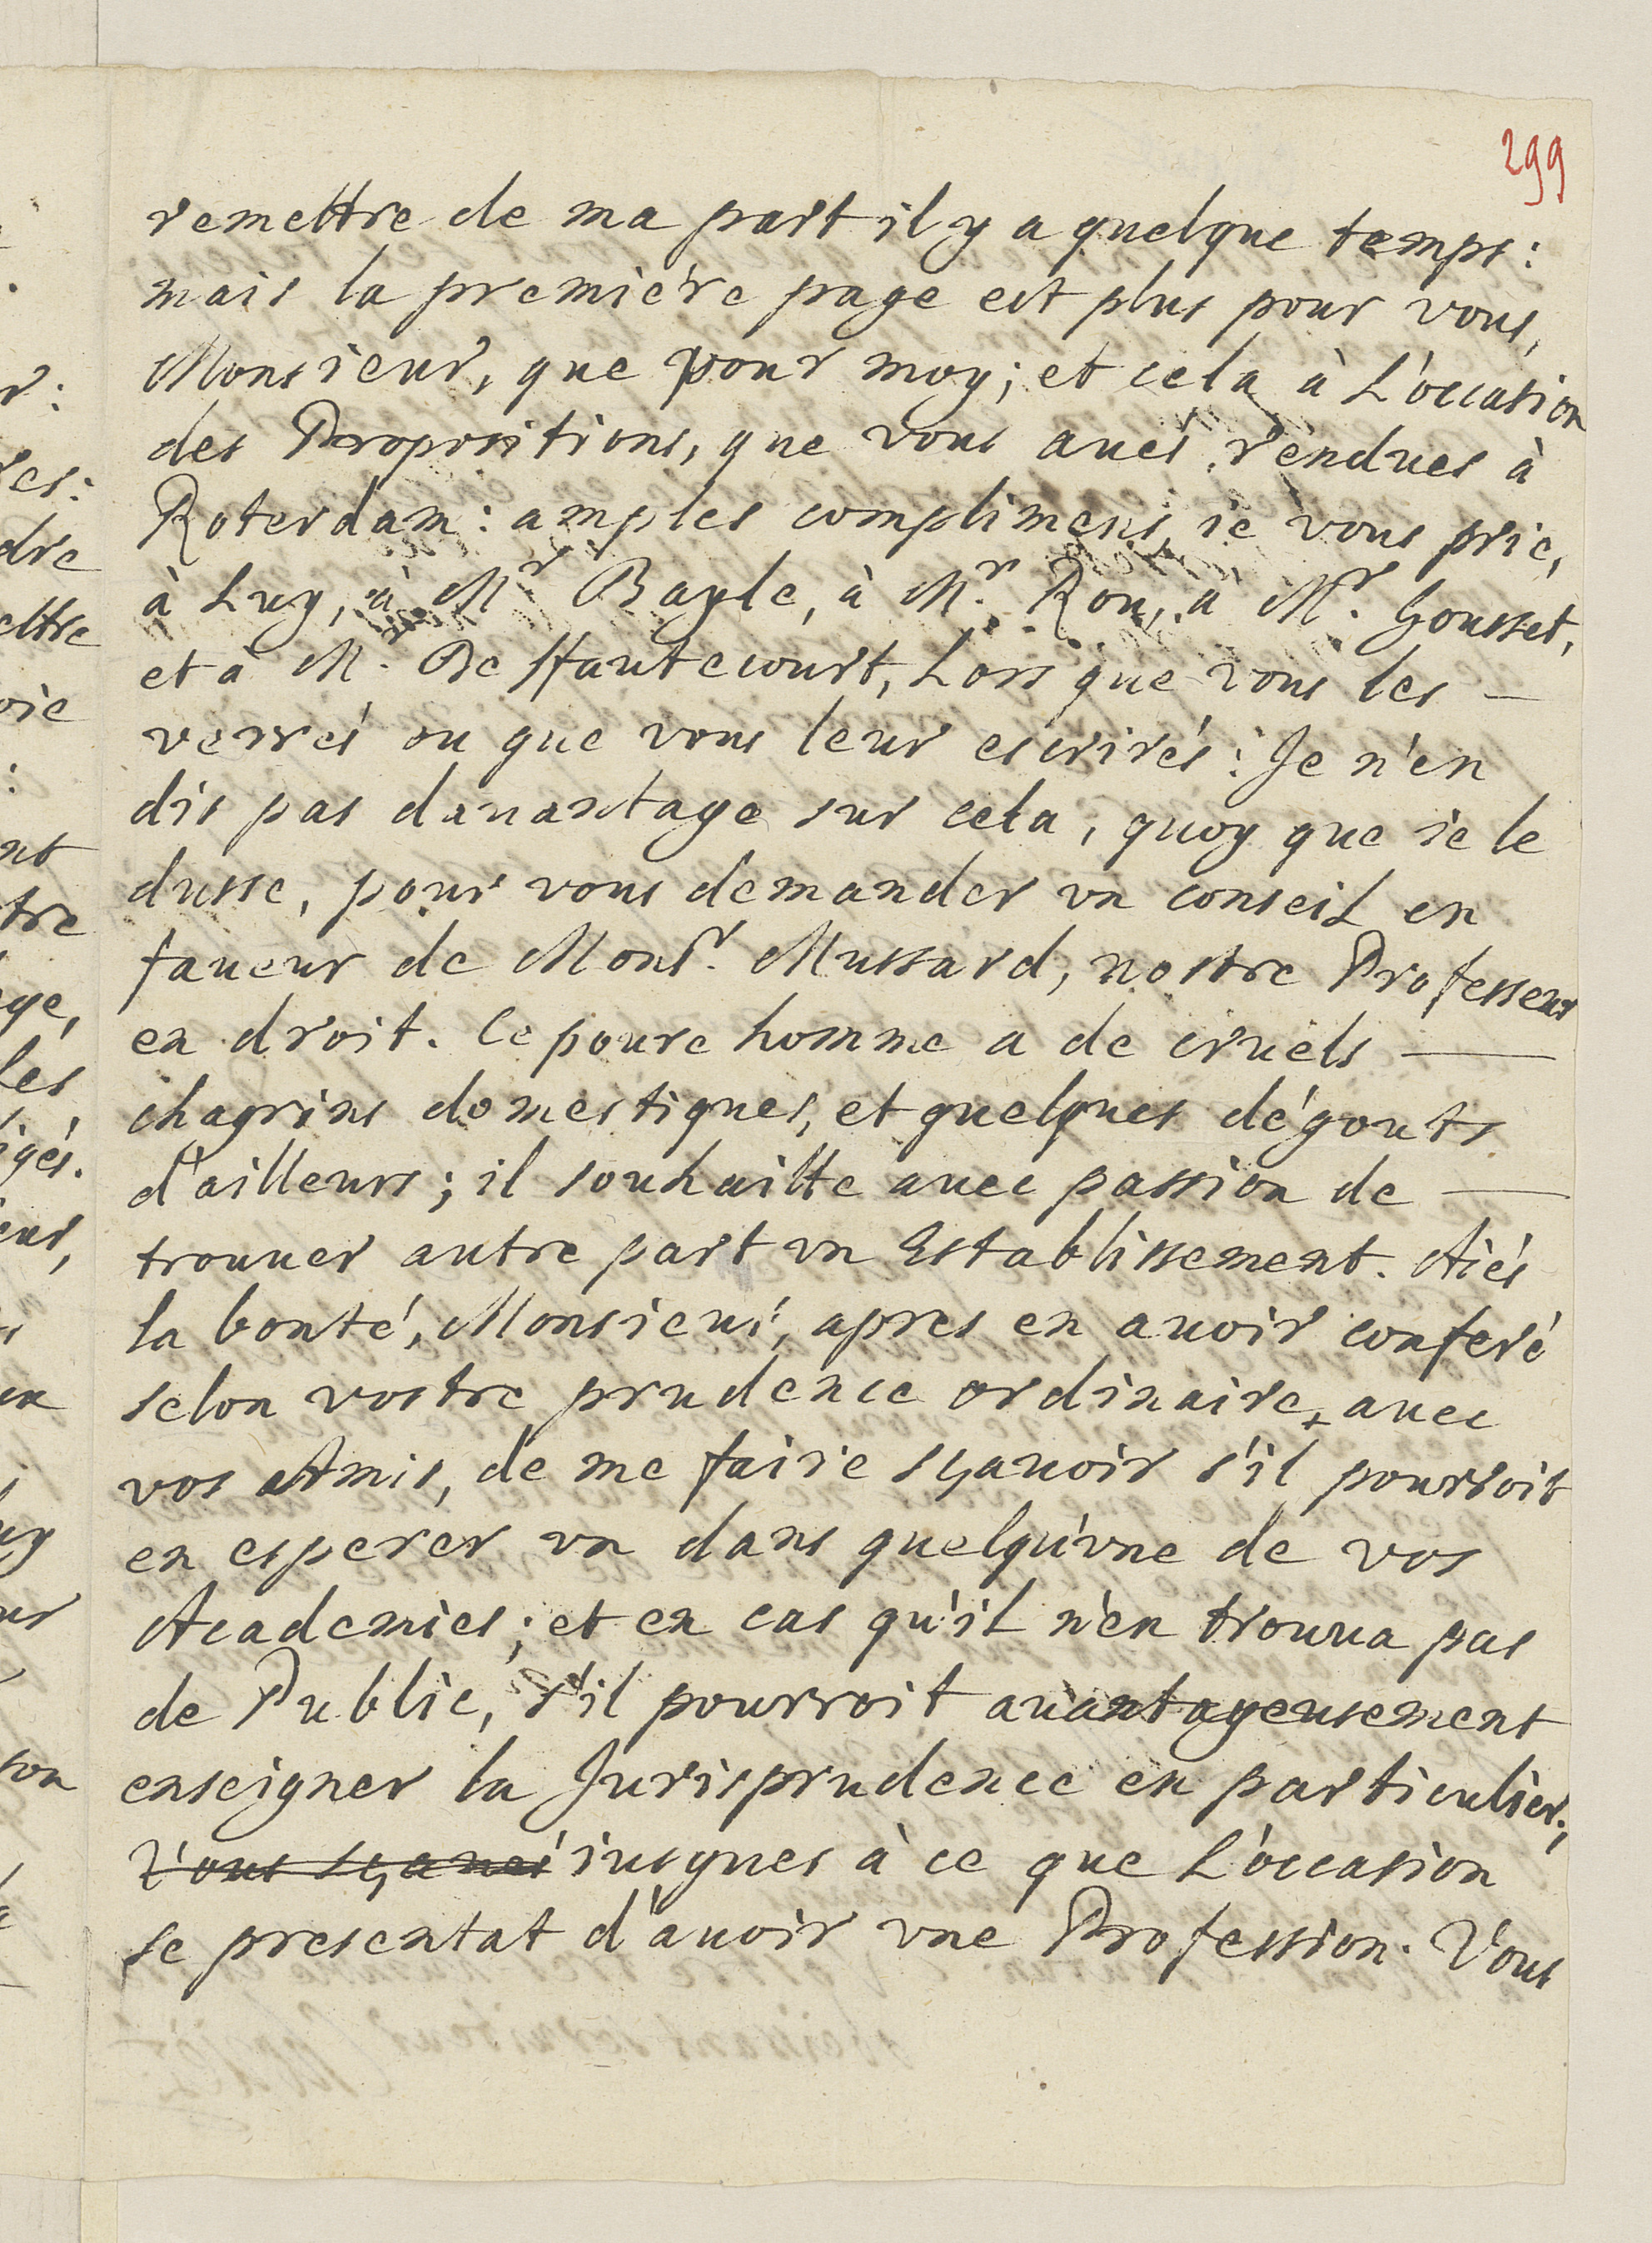 299
remettre de ma part il y a quelque temps:
mais la premiére page est plus pour vous,
Monsieur, que pour moy; et cela à L'occasion
des Propositions, que vous aués rendues à
Roterdam: amples complimens, ie vous prie,
à Luy, à Mr Bayle, à Mr. Rou, à Mr. Gousset,
et à Mr. De Hautecourt, Lors que vous les —
verrés ou que vous leur escrirés: Je n'en
dis pas dauantage sur cela, quoy que ie le
dusse, pour vous demander vn conseil en
faueur de Monsr. Mussard, nostre Professeur
en droit. Ce poure homme a de cruels —
chagrins domestiques, et quelques dégouts
d'ailleurs; il souhaitte auec passion de —
trouuer autre part vn Establissement. Aiés
la bonté, Monsieur, apres en auoir conferé
selon vostre prudence ordinaire, auec
vos Amis, de me faire sçauoir s'il pourroit
en esperer vn dans quelqu'vne de vos
Academies; et en cas qu'il n'en trouua pas
de Public, s'il pourroit auantageusement
enseigner la Jurisprudence en particulier;
Vous sçaués iusques à ce que L'occasion
se presentat d'auoir vne Profession. Vous